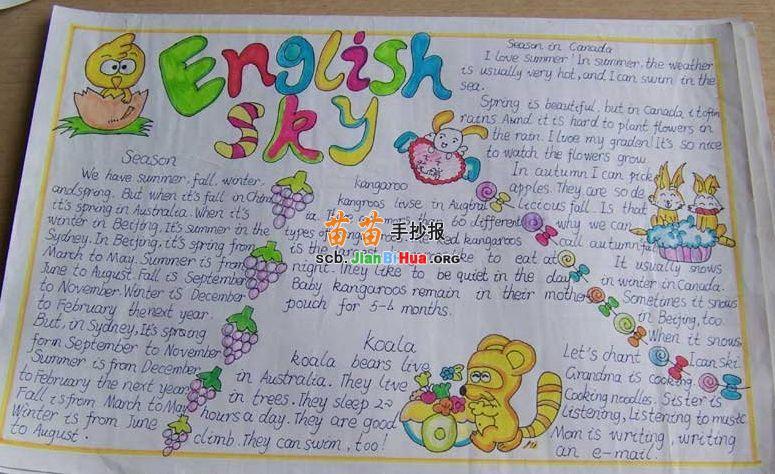 English
Sky
Season
We have summer, fall, winter,
and spring. But when it's fall in China
it's spring in Australia. When it's
winter in Beijing, It's summer in the
Sydney. In Beijing, it's spring from
March to May. Summer is from
June to August. Fall is September
to November. Winter is December
to February the next year.
But, in Sydney, It's spring
form September to November
Summer is from December
to February the next year.
Fall is from March to May
Winter is from June
to August.
kangaroo
kangroos livse in
60 different
types of kangaroos
kangaroos
is the
like to eat at
night. They like to be quiet in the day.
Baby kangaroos remain in their mothers
pouch for 5-6 months.
苗苗手抄报
scb.JianBiHua.org
Koala
koala bears live
in Australia. They live
in trees. They sleep 22
hours a day. They are good
climb. They can swim, too!
Season in Canada
I love summer! In summer, the weather
is usually very hot, and I can swim in the
sea.
Spring is beautiful, but in Canada it often
rains. Aund it is hard to plant flowers in
the rain. I lvoe my graden! It's so nice
to watch the flowers grow.
In autumn I can pick
apples. They are so de
licious fall. Is that
why we can
call autumn fall
It usually snows
in winter in Canada.
Sometimes it snows
in Beijing, too.
When it snows.
I can ski.
Let's chant
Grandma is cooking
Cooking noodles. Sister is
listening, Listening to music
Mom is writing, writing
an e-mail.